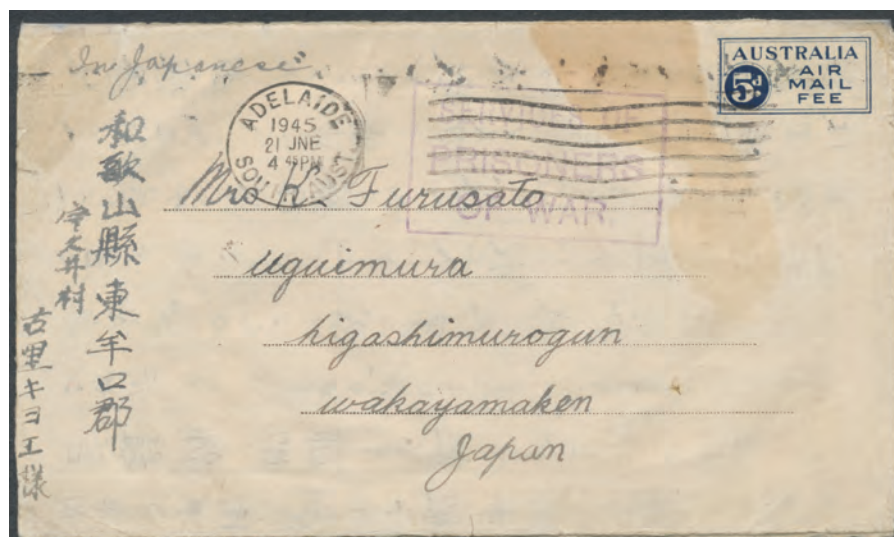 In Japanese
AUSTRALIA
AIR
MAIL
FEE
5d
ADELAIDE
1945
21 JNE
4 45 PM
SOUTH AUST.
SERVICES OF
PRISONERS
OF WAR
Mrs K. Furusato
uguimura
higashimurogun
wakayamaken
Japan
和歌山縣東牟口郡
宇久井村
古里キヨエ様